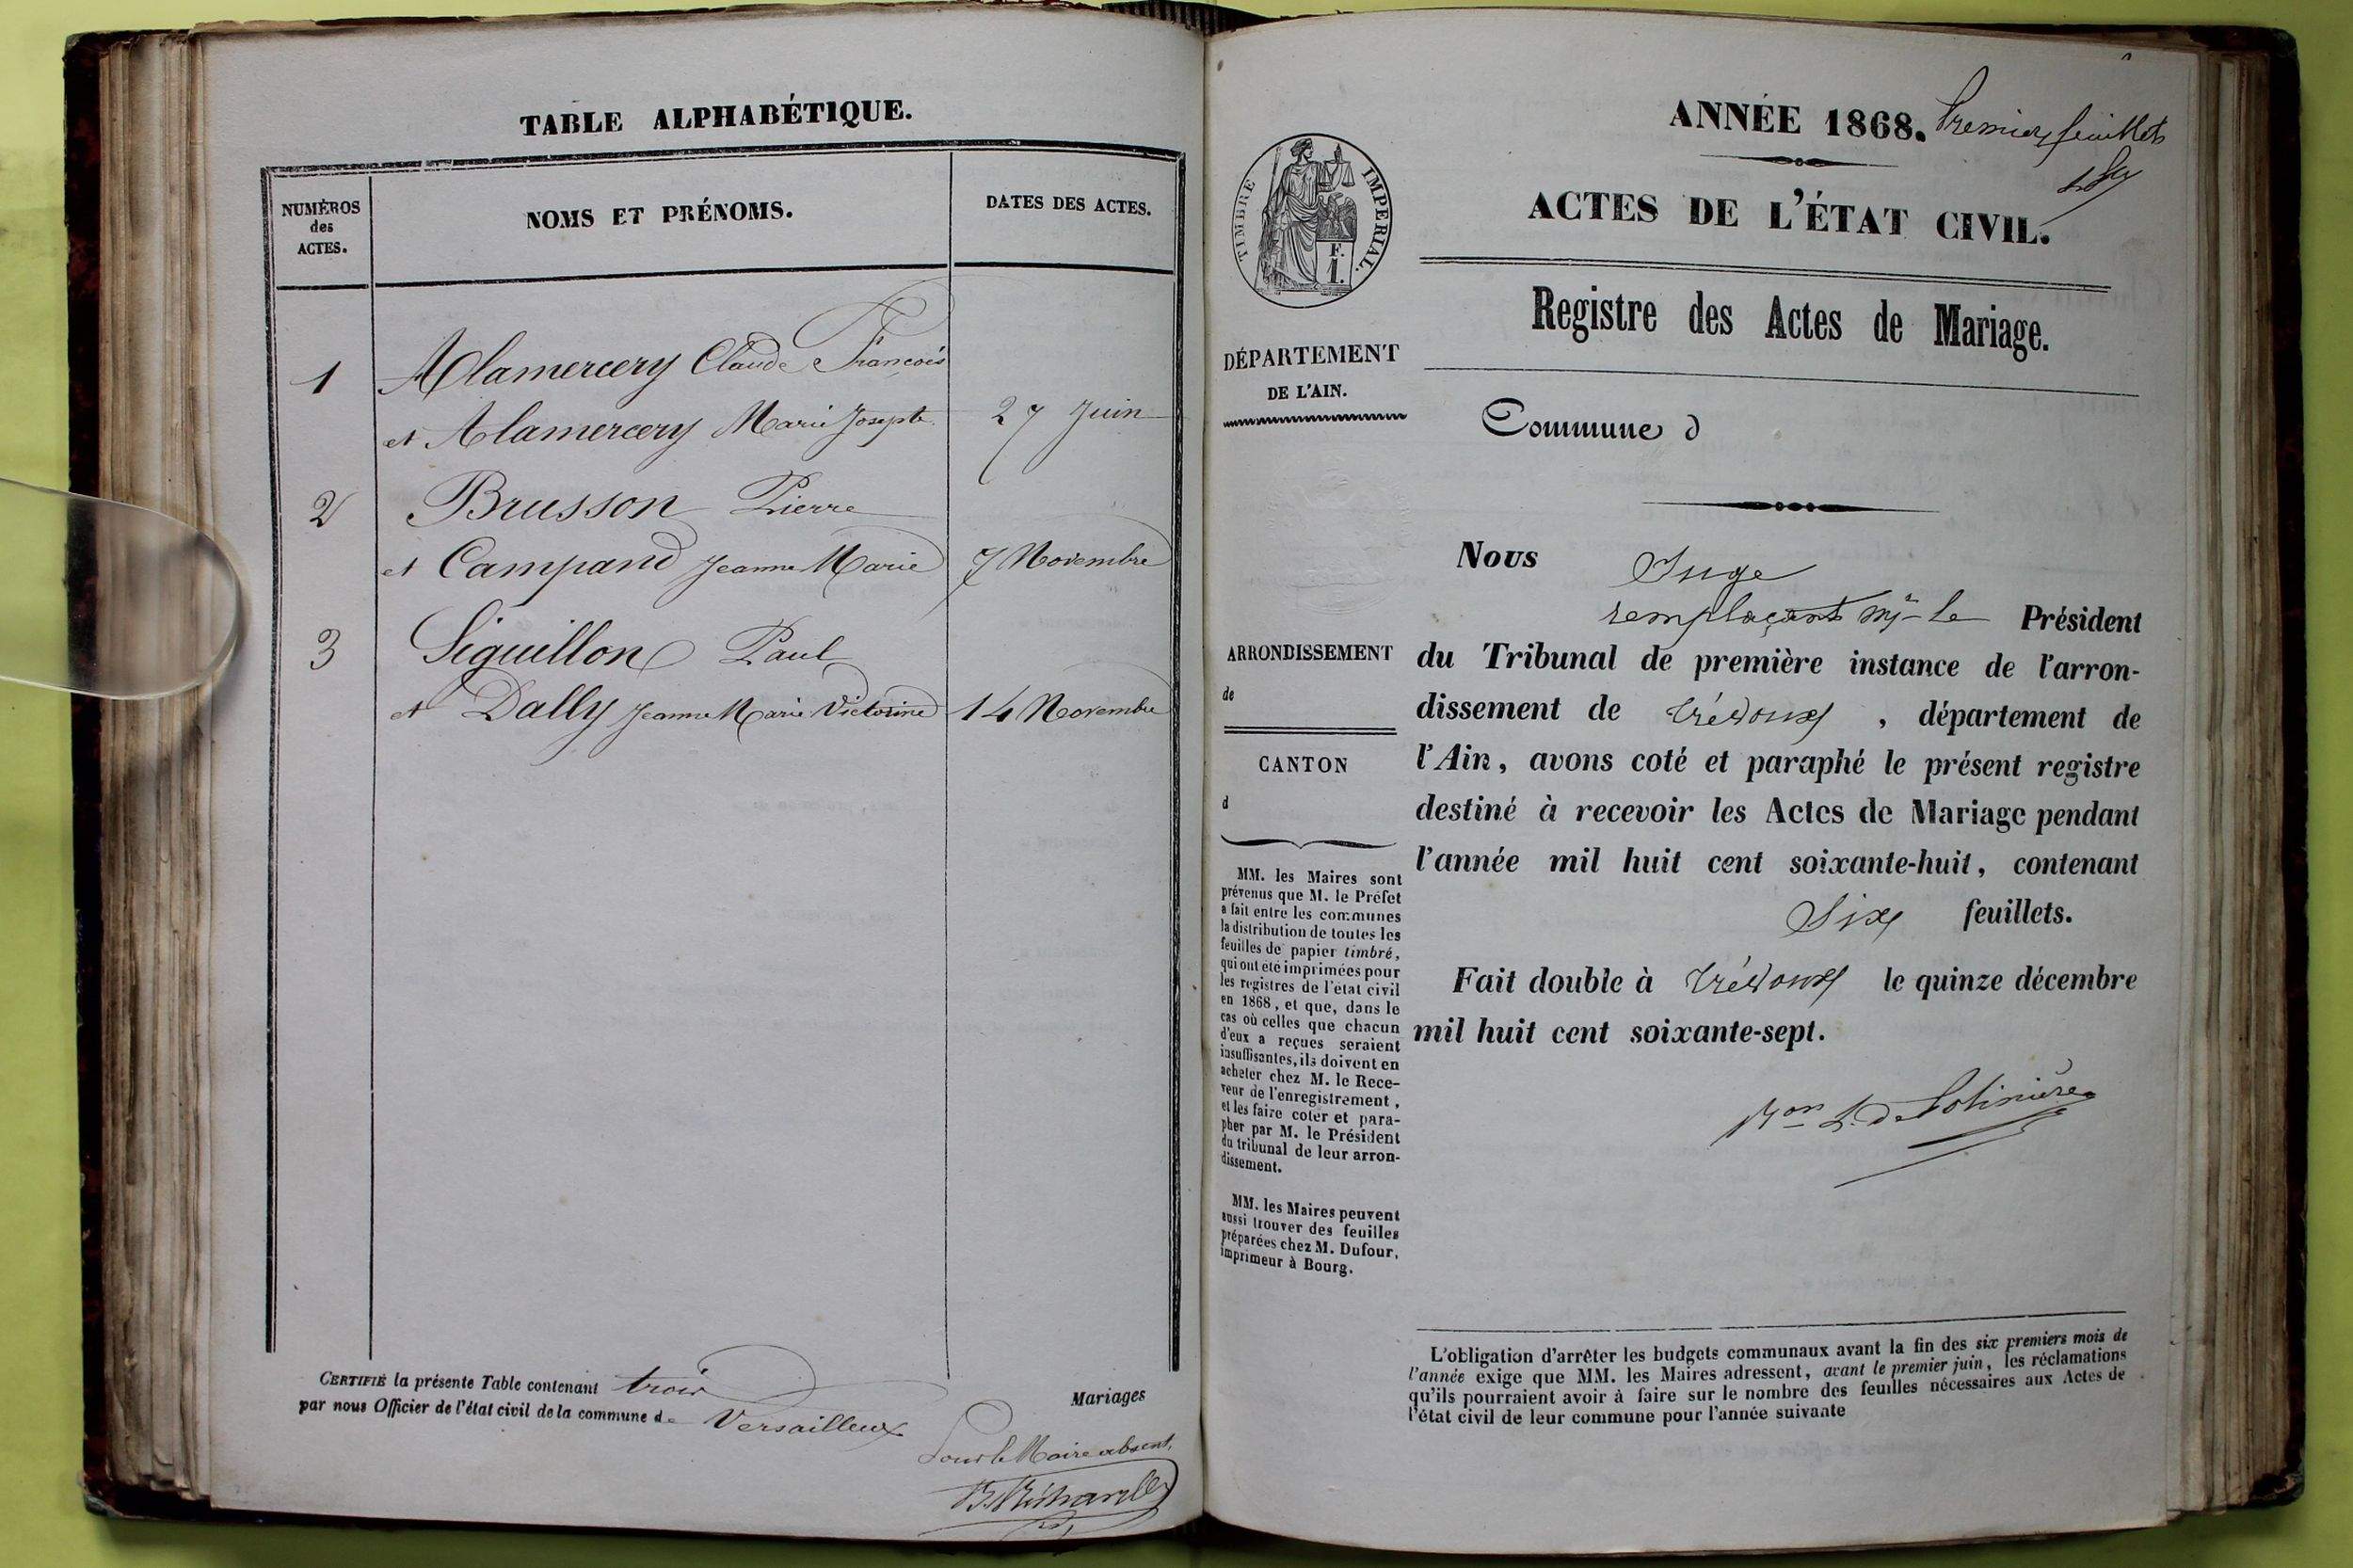 TABLE ALPHABÉTIQUE.
NUMÉROS
des
ACTES.
NOMS ET PRÉNOMS.
DATES DES ACTES.
1 Alamercery Claude François
et Alamercery Marie Josepte 27 Juin
2 Brusson Pierre
et Campand Jeanne Marie 7 Novembre
3 Siguillon Paul
et Dally Jeanne Marie Victorine 14 Novembre
CERTIFIÉ la présente Table contenant trois Mariages
par nous Officier de l'état civil de la commune de Versailleux
Pour le Maire absent,
ANNÉE 1868. Premier feuillet
ACTES DE L'ÉTAT CIVIL.
TIMBRE IMPERIAL.
F.
1.
Registre des Actes de Mariage.
DÉPARTEMENT
DE L'AIN.
Commune d
Nous Juge
remplaçant Mr le Président
du Tribunal de première instance de l'arron-
dissement de Trévoux, département de
l'Ain, avons coté et paraphé le présent registre
destiné à recevoir les Actes de Mariage pendant
l'année mil huit cent soixante-huit, contenant
Six feuillets.
Fait double à Trévoux le quinze décembre
mil huit cent soixante-sept.
ARRONDISSEMENT
de
CANTON
d
MM. les Maires sont
prévenus que M. le Préfet
a fait entre les communes
la distribution de toutes les
feuilles de papier timbré,
qui ont été imprimées pour
les registres de l'état civil
en 1868, et que, dans le
cas où celles que chacun
d'eux a reçues seraient
insuffisantes, ils doivent en
acheter chez M. le Rece-
veur de l'enregistrement,
et les faire coter et para-
pher par M. le Président
du tribunal de leur arron-
dissement.
MM. les Maires peuvent
aussi trouver des feuilles
préparées chez M. Dufour,
imprimeur à Bourg.
L'obligation d'arrêter les budgets communaux avant la fin des six premiers mois de
l'année exige que MM. les Maires adressent, avant le premier juin, les réclamations
qu'ils pourraient avoir à faire sur le nombre des feuilles nécessaires aux Actes de
l'état civil de leur commune pour l'année suivante